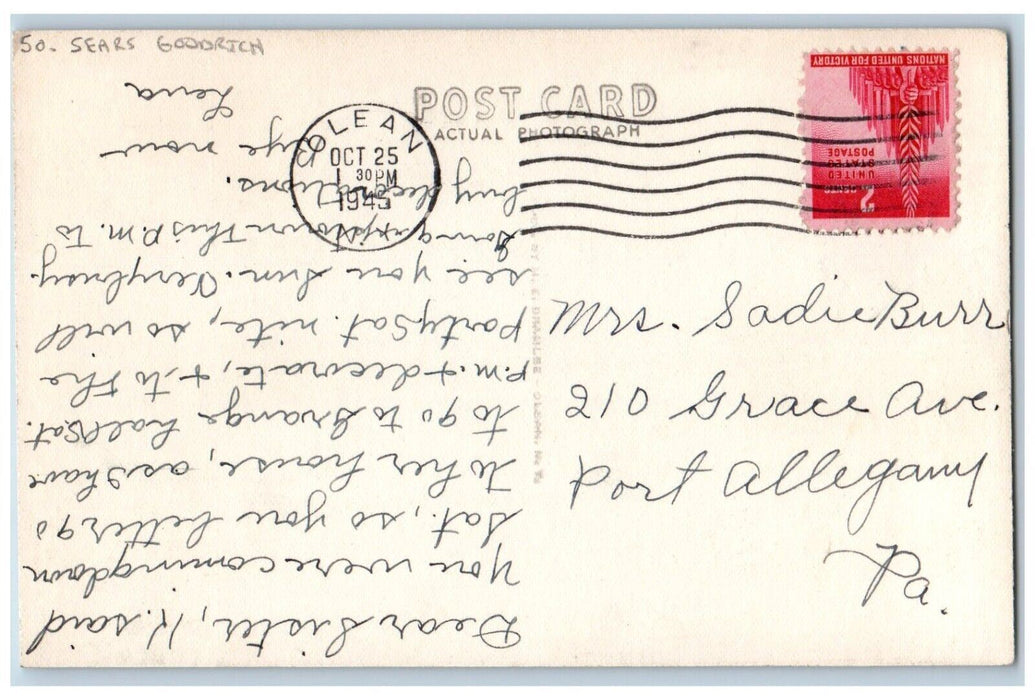 50. SEARS GOODRICH
POST CARD
ACTUAL PHOTOGRAPH
OLEAN
OCT 25
1 30 PM
1945
NATIONS UNITED FOR VICTORY
UNITED
STATES
POSTAGE
2
Mrs. Sadie Burr
210 Grace Ave.
Port Allegany
Pa.
Dear Sister, K. said
you were coming down
Sat., so you better go
to her house, as I have
to go to Grange hall Sat.
P.m. & decorate, & to the
Party Sat. nite, so will
see you Sun. Very busy.
Going uptown this P.m. to
buy decorations.
Bye now
Lena